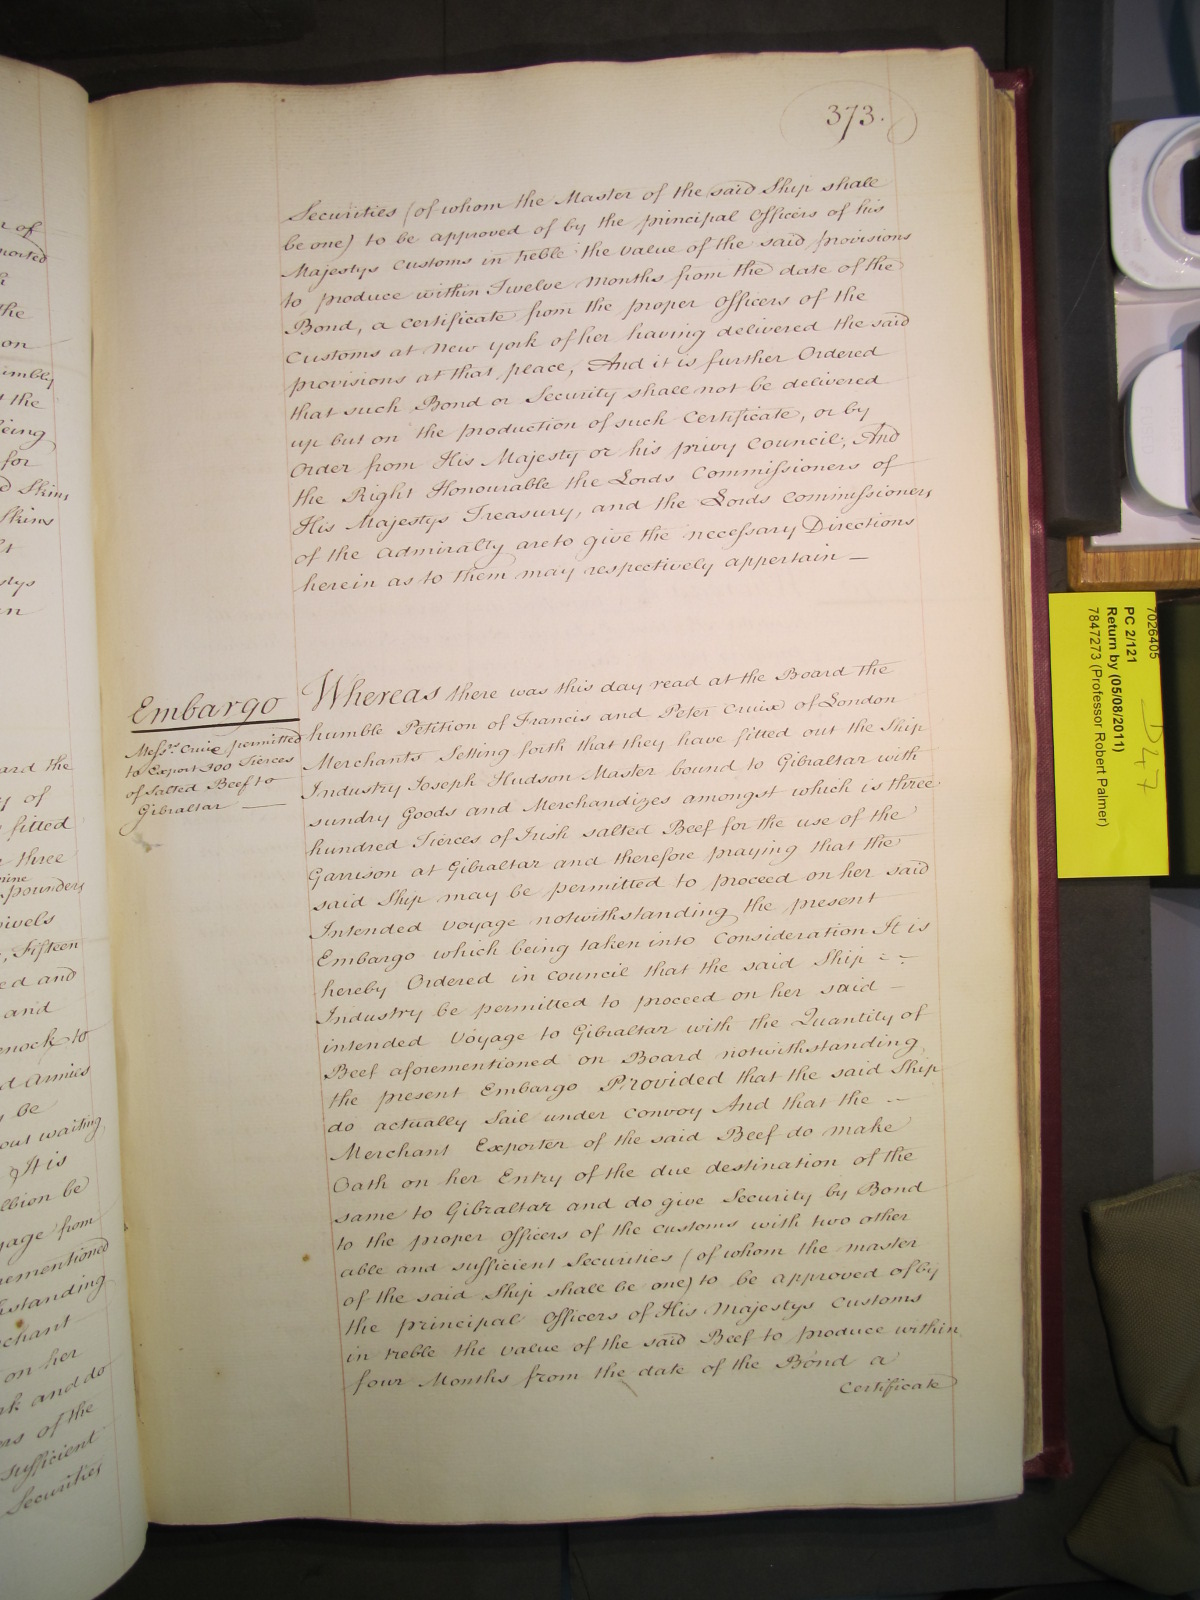 373.
Securities (of whom the Master of the said Ship shall
be one) to be approved of by the principal Officers of his
Majestys Customs in treble the value of the said provisions
to produce within Twelve Months from the date of the
Bond, a certificate from the proper Officers of the
Customs at New York of her having delivered the said
provisions at that place, And it is further Ordered
that such Bond or Security shall not be delivered
up but on the production of such Certificate, or by
Order from His Majesty or his privy Council; And
the Right Honourable the Lords Commissioners of
His Majestys Treasury, and the Lords Commissioners
of the Admiralty are to give the necessary Directions
herein as to them may respectively appertain —
Embargo
Messrs. Cruix permitted
to Export 300 Tierces
of Salted Beef to
Gibraltar —
Whereas there was this day read at the Board the
humble Petition of Francis and Peter Cruix of London
Merchants Setting forth that they have fitted out the Ship
Industry Joseph Hudson Master bound to Gibraltar with
sundry Goods and Merchandizes amongst which is three
hundred Tierces of Irish salted Beef for the use of the
Garrison at Gibraltar and therefore praying that the
said Ship may be permitted to proceed on her said
Intended Voyage notwithstanding the present
Embargo which being taken into Consideration It is
hereby Ordered in Council that the said Ship
Industry be permitted to proceed on her said —
intended Voyage to Gibraltar with the Quantity of
Beef aforementioned on Board notwithstanding
the present Embargo Provided that the said Ship
do actually Sail under Convoy And that the —
Merchant Exporter of the said Beef do make
Oath on her Entry of the due destination of the
same to Gibraltar and do give Security by Bond
to the proper Officers of the Customs with two other
able and sufficient Securities (of whom the master
of the said Ship shall be one) to be approved of by
the principal Officers of His Majestys Customs
in treble the value of the said Beef to produce within
four Months from the date of the Bond a
Certificate
7026405
PC 2/121
Return by (05/08/2011)
7847273 (Professor Robert Palmer)
D47
r of
ported
the
on
umbly
t the
eing
for
d Skins
Skins
stys
ard the
y of
fitted
three
nine
pounders
ivels
, Fifteen
ed and
and
nock to
d Armies
y be
out waiting
It is
lbion be
yage from
rementioned
hstanding
chant
on her
rk and do
ers of the
sufficient
Securities